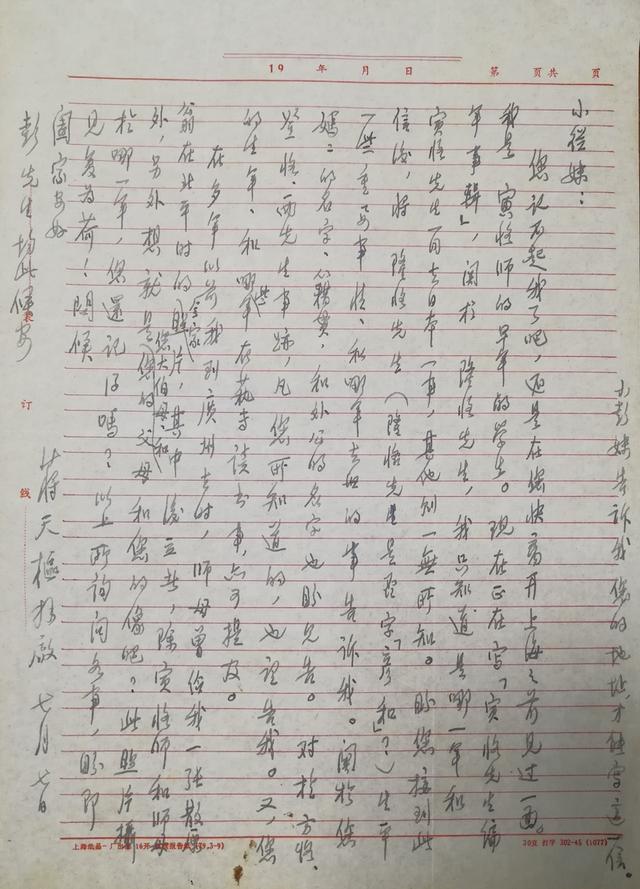 19 年 月 日 第 页共 页
小彭妹告诉我您的地址,才能写这一信。
小從妹:
您记不起我了吧,还是在您快离开上海之前见过一面。
我是 寅恪师的早年的学生。现在正在写「寅恪先生编
年事輯」,関於 隆恪先生,我只知道是哪一年和
寅恪先生一同去日本一事,其他则一無所知。盼您接到此
信後,将 隆恪先生(隆恪先生是否字「彦和」?)生平
一些重要事情,和哪年去世的事告诉我。関於您
媽媽的名字、籍貫,和外公的名字也盼見告。对於方恪、
登恪、两先生事跡,凡您所知道的,也望告我。又,您
的生年、和哪些年在读书事,亦可提及。
在多年以前我到广州去时,师母曾给我一张散原
翁在北平时的全家照片,其中後立者,除寅恪师和师母
外,另外想就是您大伯母和您的父母和您的像吧?此照片攝
於哪一年,您還记得嗎?以上所詢问各事,盼即
見复为荷!問候
阖家安好
彭先生均此候安
蒋天樞拜啟 七月七日
装
订
线
上海纸品一厂出品 16开 报告纸 (79.3-9) 30页 打字 302-45 (1077)